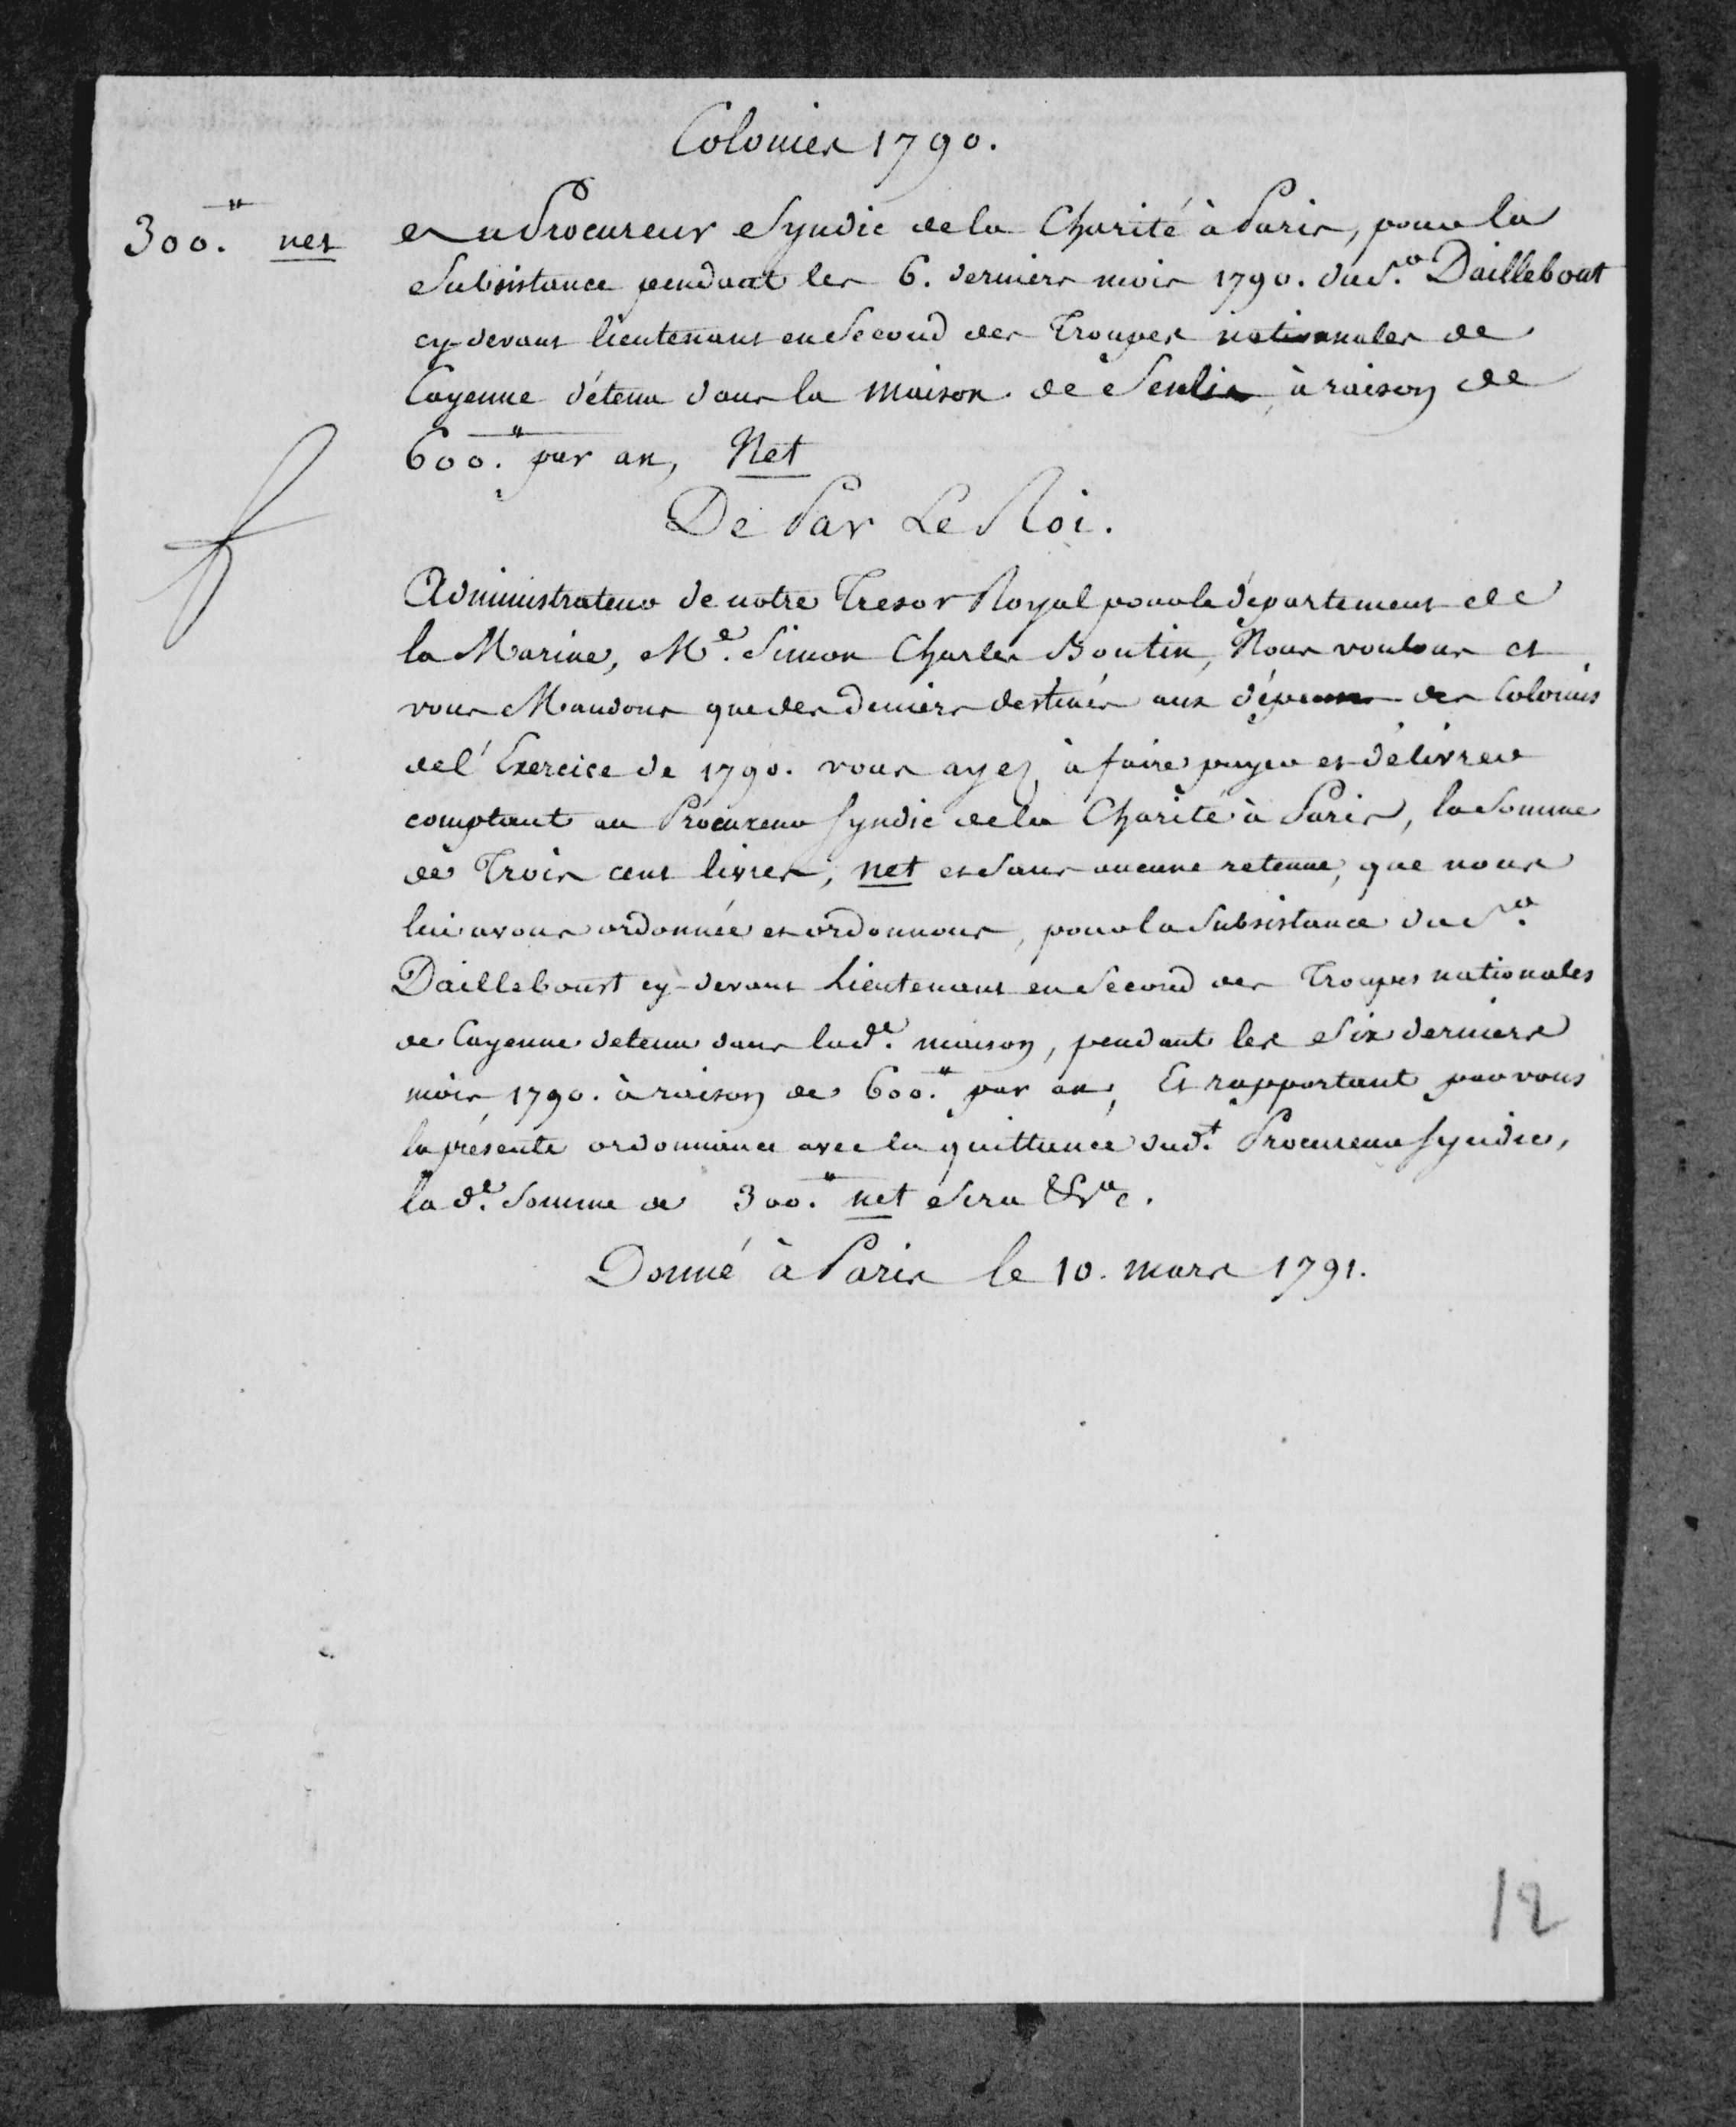 Colonies 1790.
300.₶ net
Au Procureur Syndic de la Charité à Paris, pour la
Subsistance pendant les 6. derniers mois 1790. du S.r Daillebout
cy-devant lieutenant en Second des Troupes nationales de
Cayenne détenu dans la maison de Senlis, à raison de
600.₶ par an, Net
De Par Le Roi.
Administrateur de notre Tresor Royal pour le département de
la Marine, M.e Simon Charles Boutin, Nous voulons et
vous Mandons que des deniers destinés aux dépenses des Colonies
de l'Exercice de 1790. vous ayez à faire payer et délivrer
comptant au Procureur Syndic de la Charité à Paris, la Somme
de Trois cent livres, net et Sans aucune retenue, que nous
lui avons ordonnée et ordonnons, pour la Subsistance du S.r
Daillebourt cy-devant Lieutenant en Second des Troupes nationales
de Cayenne detenu dans lad.e maison, pendant les Six derniers
mois 1790. à raison de 600.₶ par an, Et rapportant par vous
la présente ordonnance avec la quittance dud.t Procureur Syndic,
la d.e Somme de 300.₶ net Sera &c.
Donné à Paris le 10. mars 1791.
12